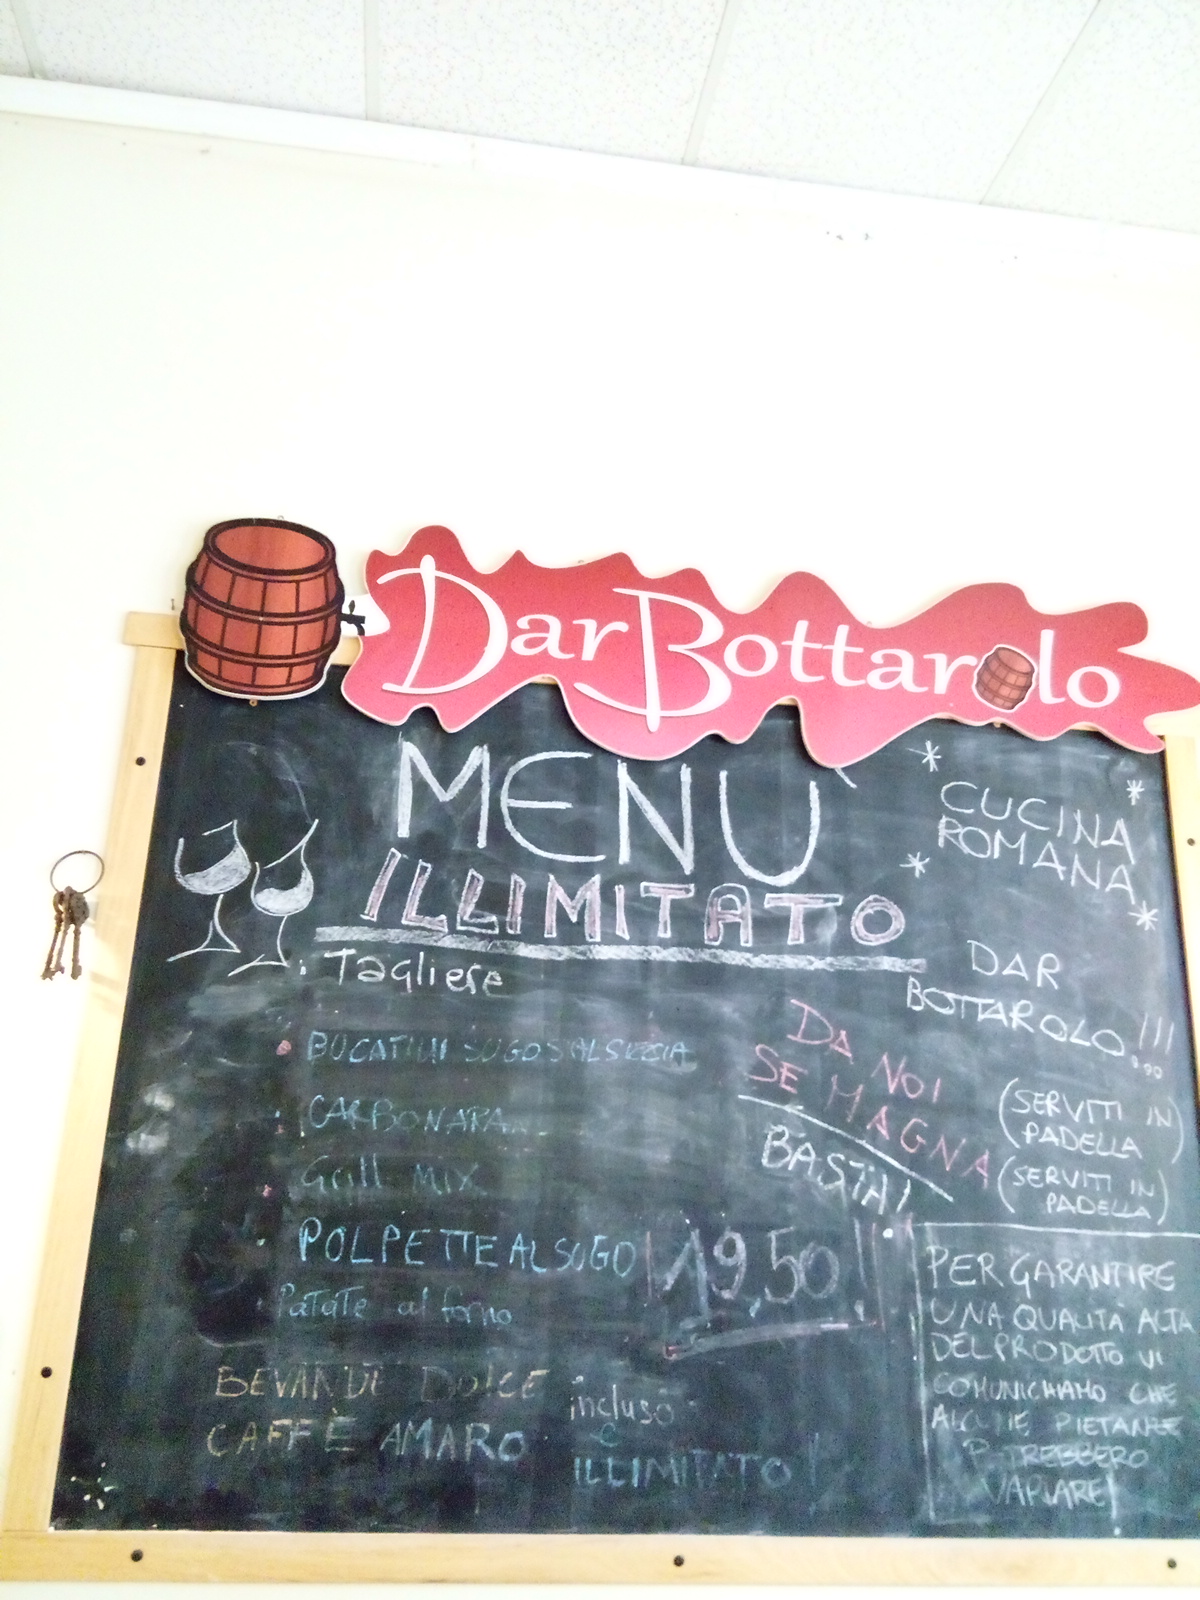 Dar Bottarolo
MENU'
ILLIMITATO
Tagliere
BUCATINI SUGO SALSICCIA
CARBONARA
Grill MIX
POLPETTE AL SUGO
Patate al forno
BEVANDE DOLCE
CAFFÈ AMARO
incluso
e
ILLIMITATO
DA NOI
SE MAGNA
BASTA!
19,50
CUCINA
ROMANA
DAR
BOTTAROLO!!!
(SERVITI IN
PADELLA)
(SERVITI IN
PADELLA)
PER GARANTIRE
UNA QUALITÀ ALTA
DEL PRODOTTO VI
COMUNICHIAMO CHE
ALCUNE PIETANZE
POTREBBERO
VARIARE!